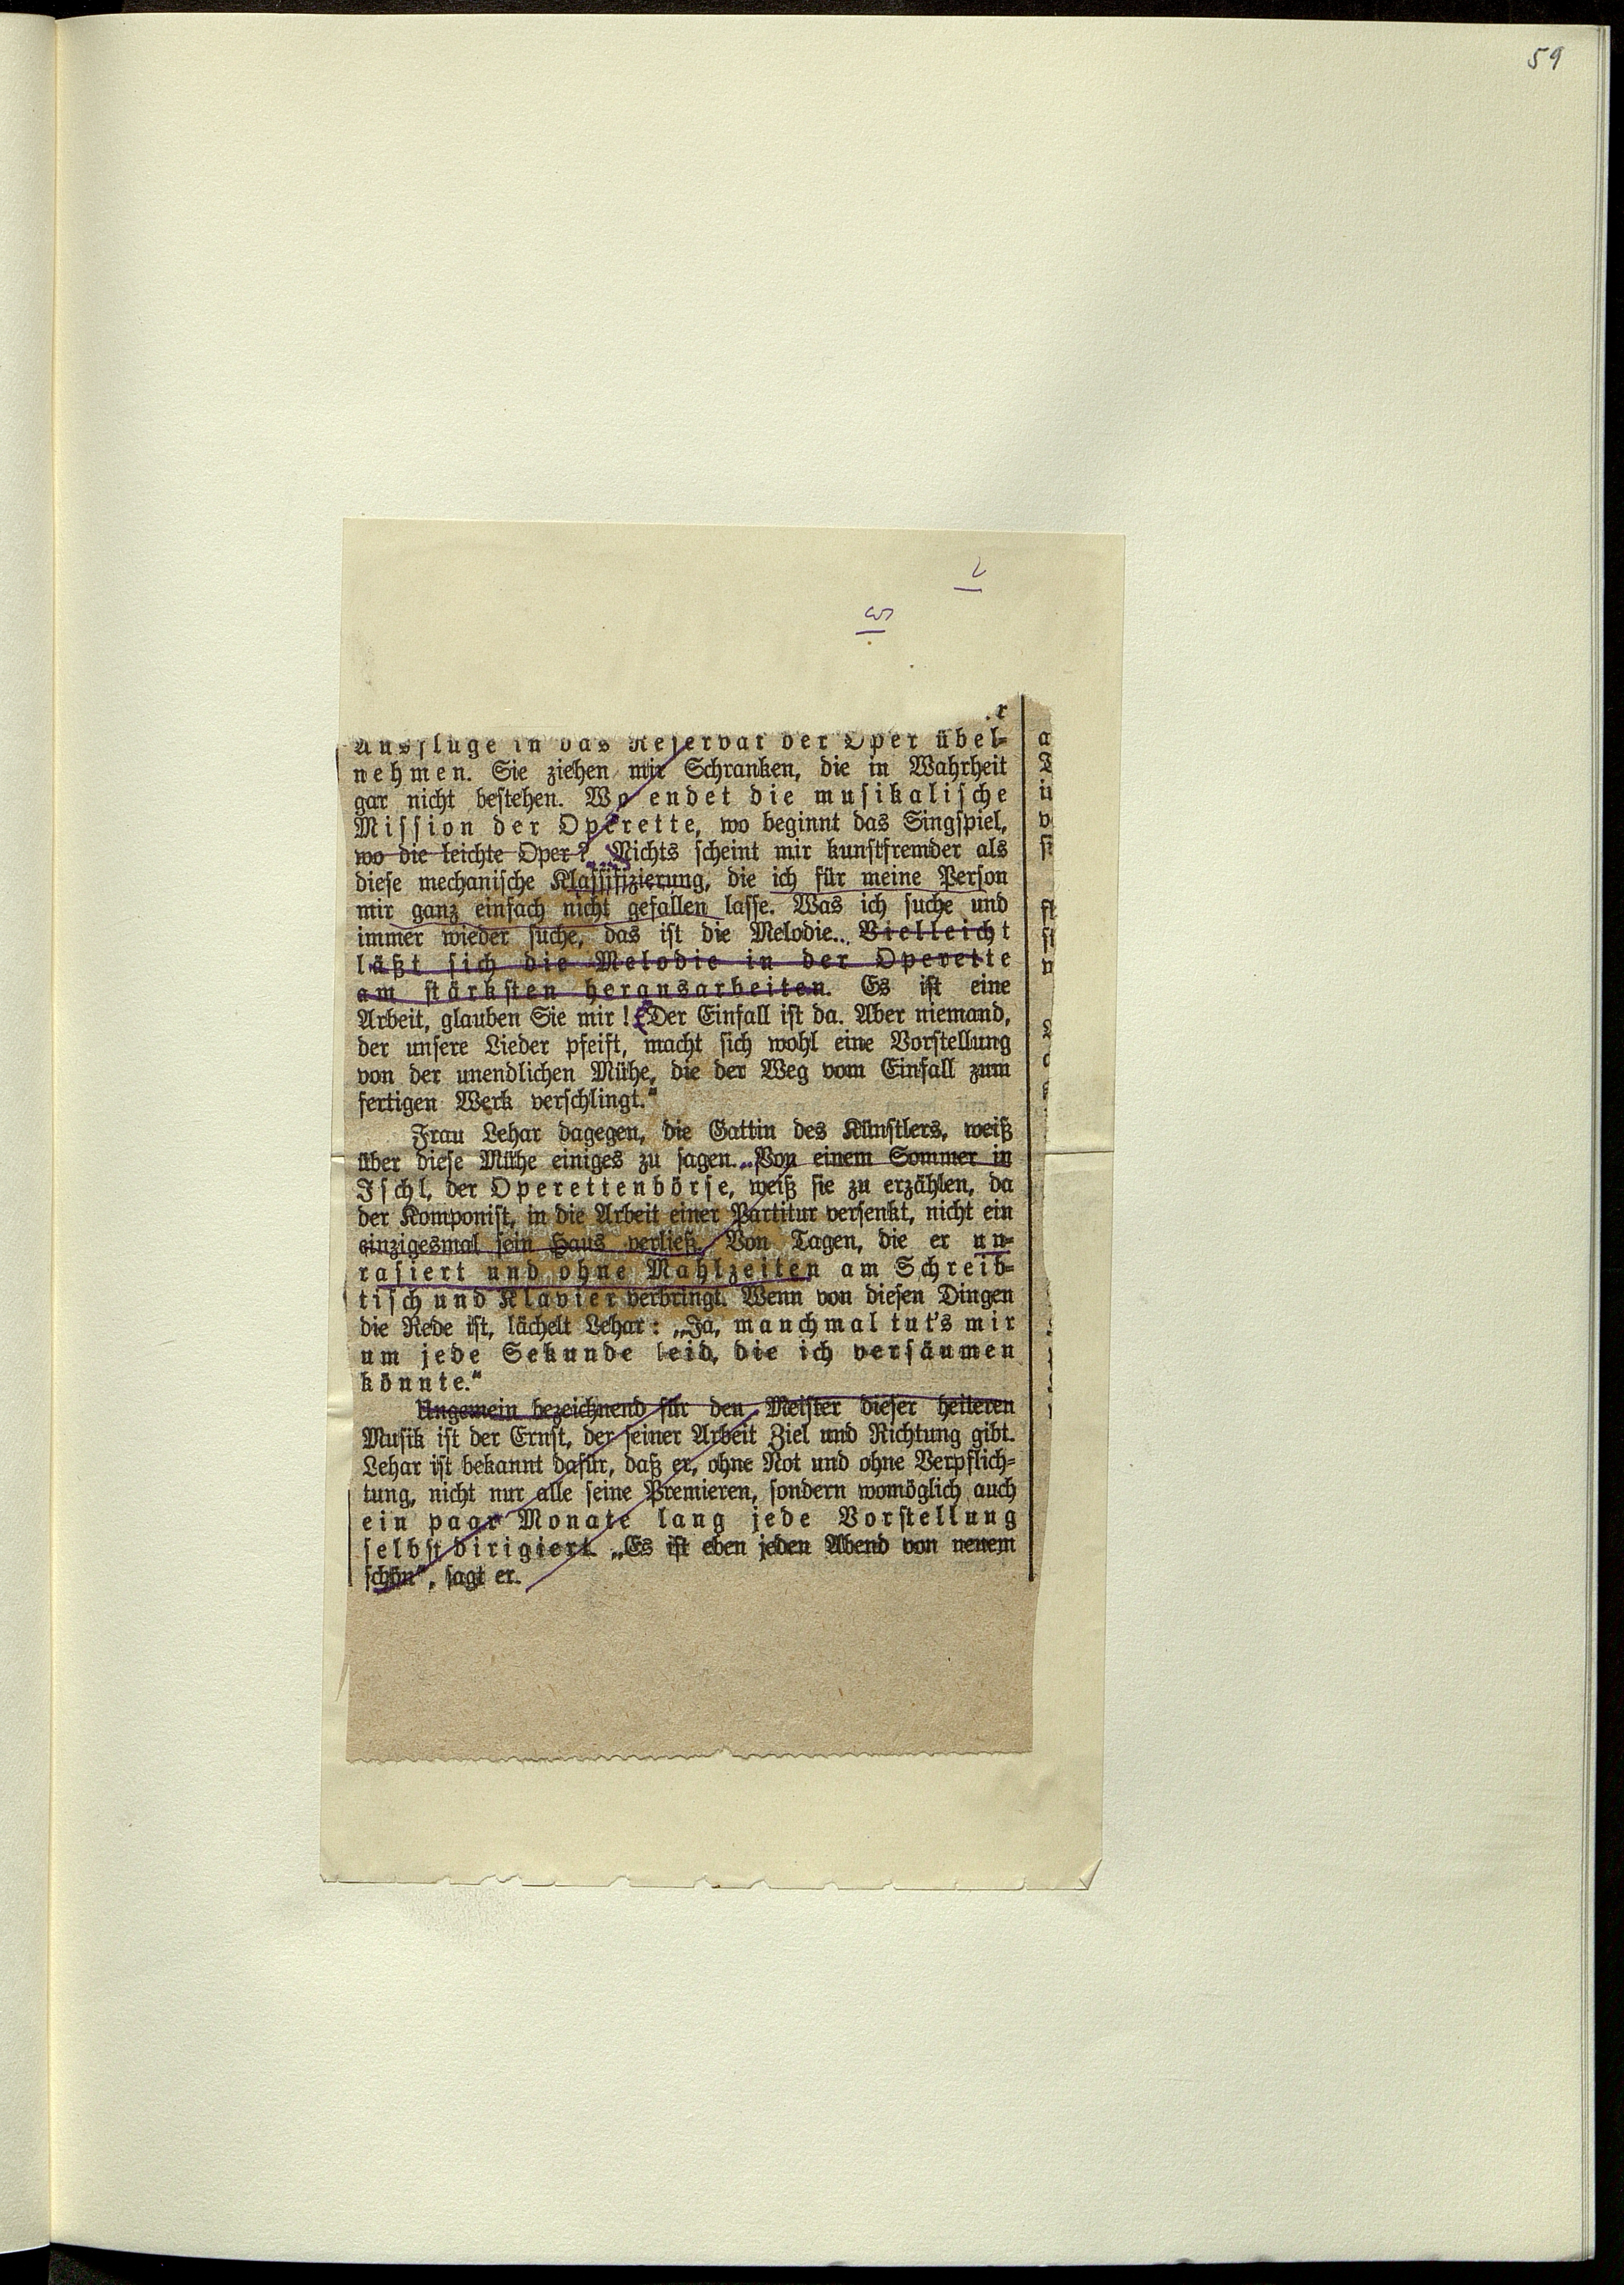 59
r
Ausflüge in das Reservat der Oper übel-
nehmen. Sie ziehen mir Schranken, die in Wahrheit
gar nicht bestehen. Wo endet die musikalische
Mission der Operette, wo beginnt das Singspiel,
wo die leichte Oper? Nichts scheint mir kunstfremder als
diese mechanische Klassifizierung, die ich für meine Person
mir ganz einfach nicht gefallen lasse. Was ich suche und
immer wieder suche, das ist die Melodie.. Vielleicht
läßt sich die Melodie in der Operette
am stärksten herausarbeiten. Es ist eine
Arbeit, glauben Sie mir! Der Einfall ist da. Aber niemand,
der unsere Lieder pfeift, macht sich wohl eine Vorstellung
von der unendlichen Mühe, die der Weg vom Einfall zum
fertigen Werk verschlingt."
Frau Lehar dagegen, die Gattin des Künstlers, weiß
über diese Mühe einiges zu sagen. Von einem Sommer in
Ischl, der Operettenbörse, weiß sie zu erzählen, da
der Komponist, in die Arbeit einer Partitur versenkt, nicht ein
einzigesmal sein Haus verließ. Von Tagen, die er un-
rasiert und ohne Mahlzeiten am Schreib-
tisch und Klavier verbringt. Wenn von diesen Dingen
die Rede ist, lächelt Lehar: „Ja, manchmal tut's mir
um jede Sekunde leid, die ich versäumen
könnte."
Ungemein bezeichnend für den Meister dieser heiteren
Musik ist der Ernst, der seiner Arbeit Ziel und Richtung gibt.
Lehar ist bekannt dafür, daß er, ohne Not und ohne Verpflich-
tung, nicht nur alle seine Premieren, sondern womöglich auch
ein paar Monate lang jede Vorstellung
selbst dirigiert. „Es ist eben jeden Abend von neuem
schön", sagt er.